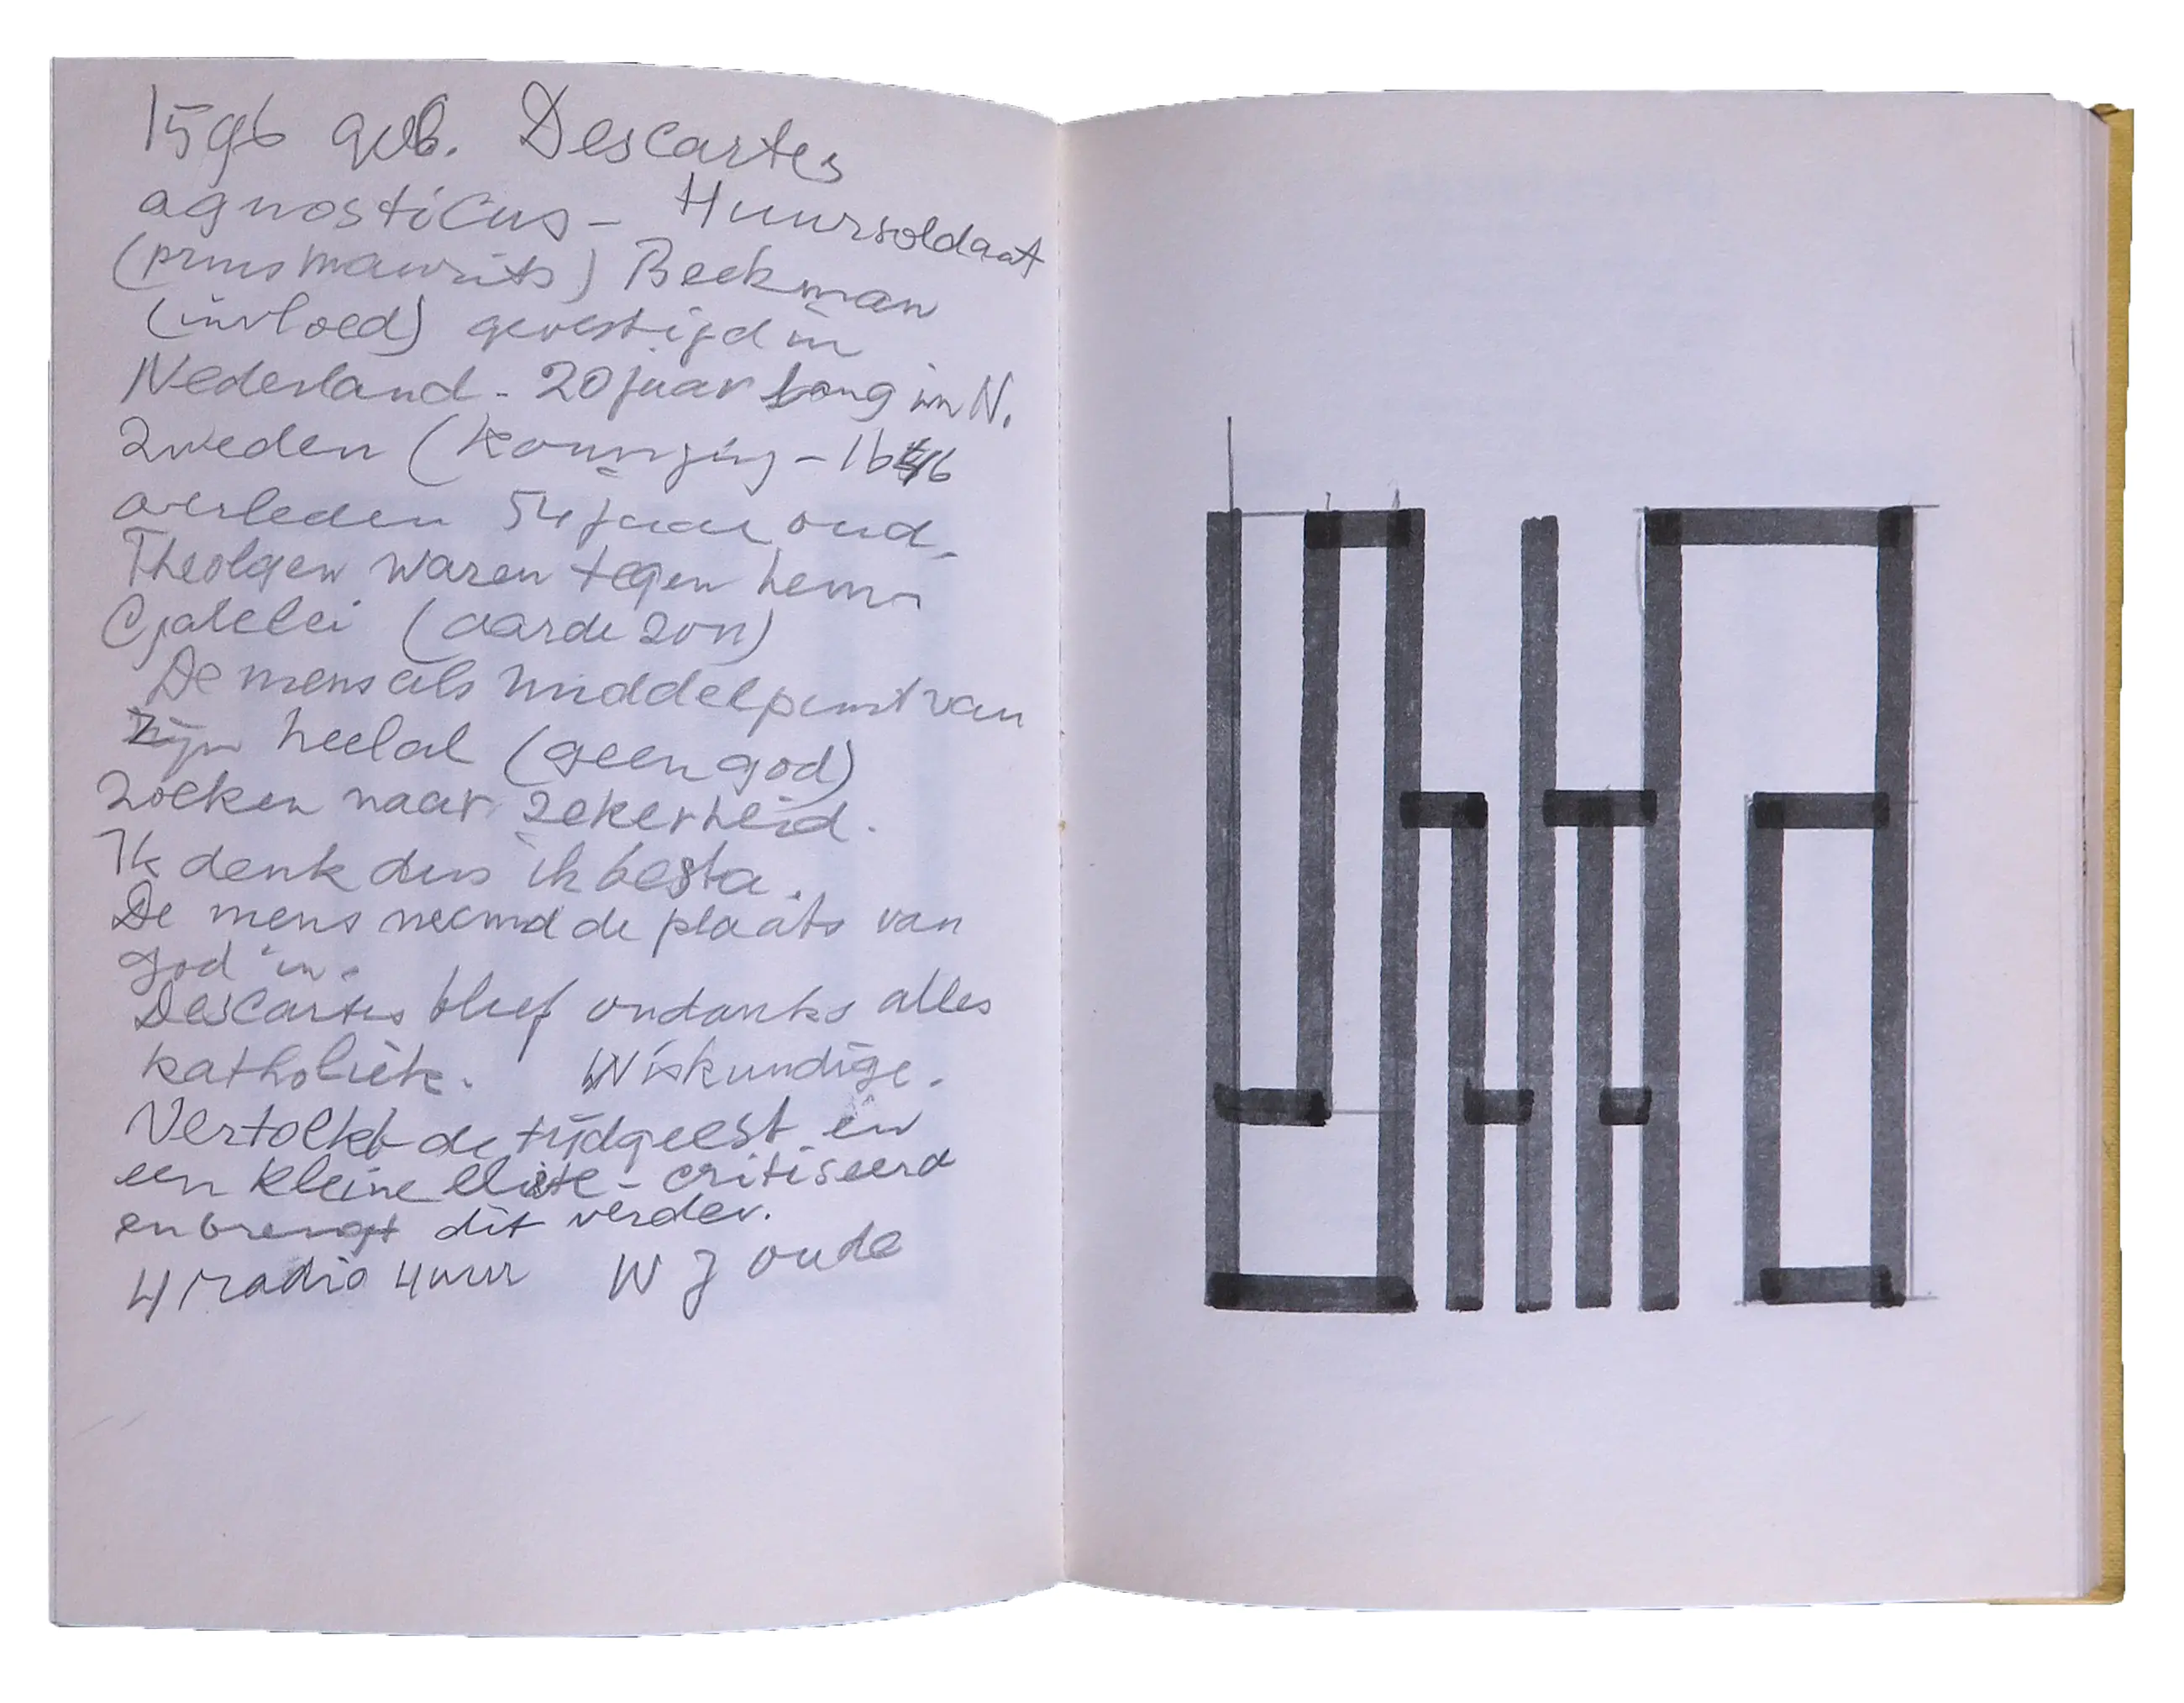 1596 geb. Descartes
agnosticus - Huursoldaat
(prins maurits) Beekman
(invloed) gevestigd in
Nederland - 20 jaar lang in N.
Zweden (Koningin - 1646
overleden 54 jaar oud.
Theolgen waren tegen hem
Galelei (aarde zon)
De mens als middelpunt van
zijn heelal (geen god)
zoeken naar zekerheid.
Ik denk dus ik besta.
De mens neemd de plaats van
god in.
Descartes bleef ondanks alles
katholiek. Wiskundige.
Vertolkt de tijdgeest in
een kleine elite - critiseerd
en brengt dit verder.
4 radio 4 uur W J oude